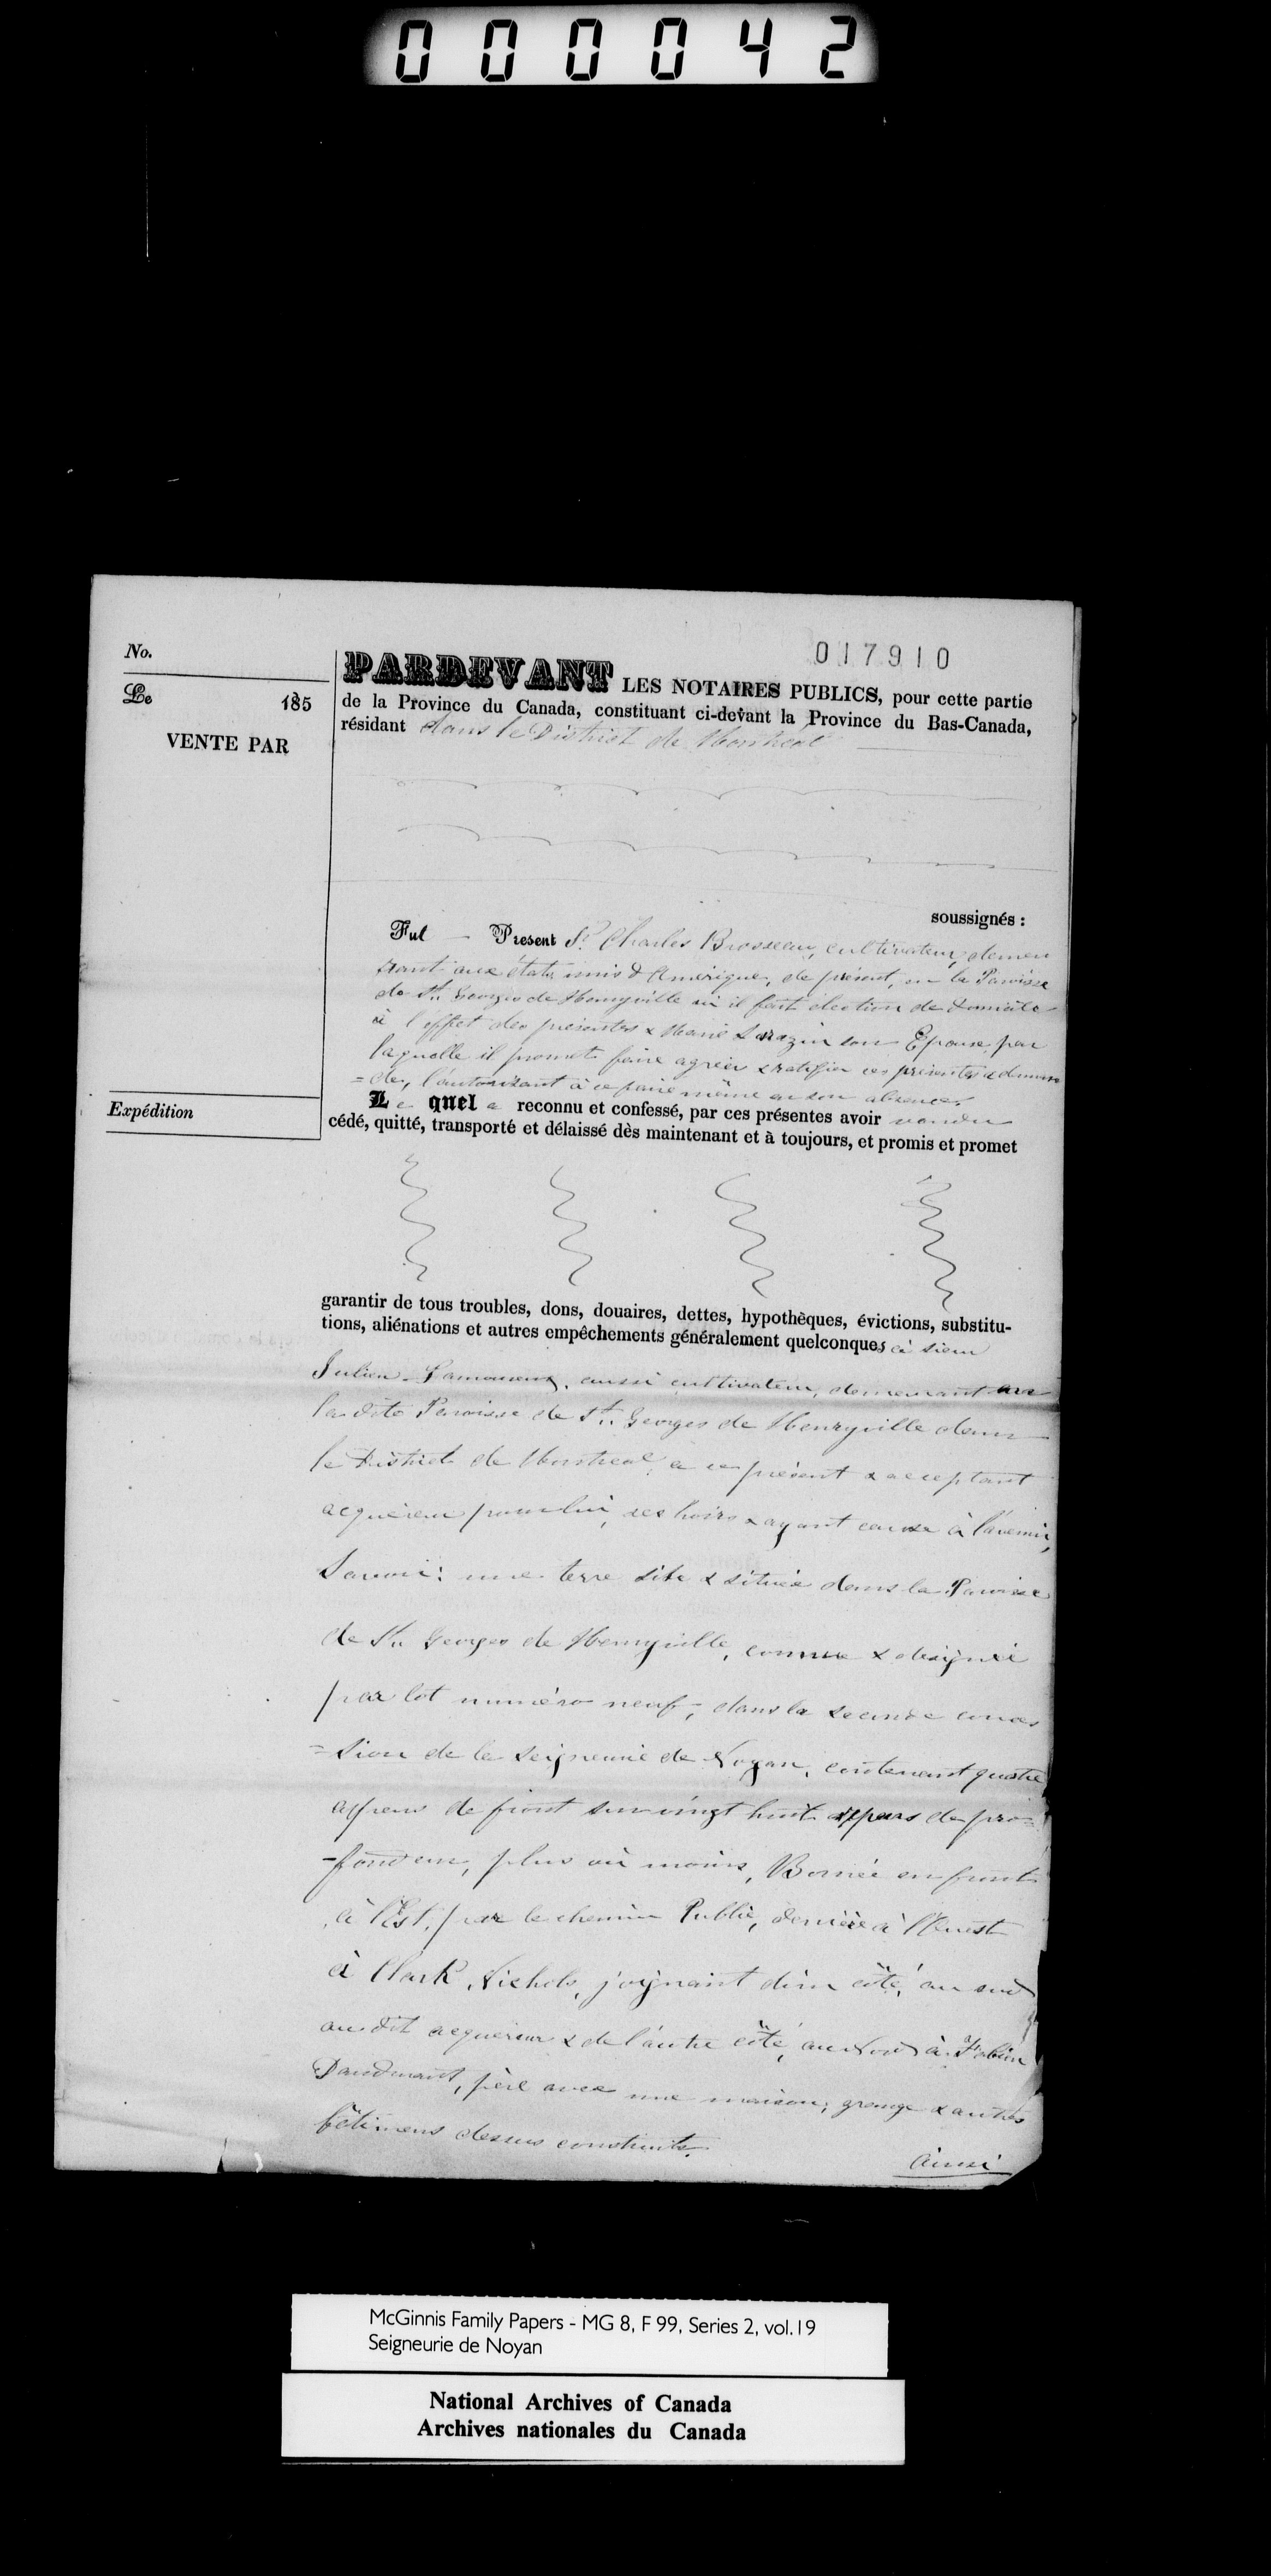 000042
017910
No.
Le 185
VENTE PAR
Expédition
PARDEVANT LES NOTAIRES PUBLICS, pour cette partie
de la Province du Canada, constituant ci-devant la Province du Bas-Canada,
résidant dans le District de Montréal
soussignés :
Fut Present Sr. Charles Brosseau, cultivateur, demeu
rant aux états unis d'Amérique, de présent, en la Paroisse
de St. Georges de Henryville où il fait élection de domicile
à l'effet des présentes & Marie Sarazin son Epouse, par
laquelle il promet faire agréer & ratifier ces présentes
l'autorisant à ce faire même en son absence.
Le quel a reconnu et confessé, par ces présentes avoir vendu
cédé, quitté, transporté et délaissé dès maintenant et à toujours, et promis et promet
garantir de tous troubles, dons, douaires, dettes, hypothèques, évictions, substitu-
tions, aliénations et autres empêchements généralement quelconques à sieur
Julien Lamoureux, aussi cultivateur, demeurant en
la dite Paroisse de St. Georges de Henryville dans
le District de Montreal, à ce présent & acceptant
acquéreur pour lui, ses hoirs & ayant cause à l'avenir,
Savoir: une terre sise & située dans la Paroisse
de St. Georges de Henryville, connue & désignée
par lot numéro neuf, dans la seconde conces
=sion de la Seigneurie de Noyan, contenant quatre
arpens de front sur vingt huit arpens de pro=
-fondeur, plus ou moins, Bornée en front
à l'Est, par le chemin Public, derrière à l'Ouest
à Clark Nichols, joignant d'un côté, au sud
au dit acquéreur & de l'autre côté, au Nord à Fabien
Dandurant, père avec une maison, grange & autres
bâtimens dessus construits.
Ainsi
McGinnis Family Papers - MG 8, F 99, Series 2, vol.19
Seigneurie de Noyan
National Archives of Canada
Archives nationales du Canada